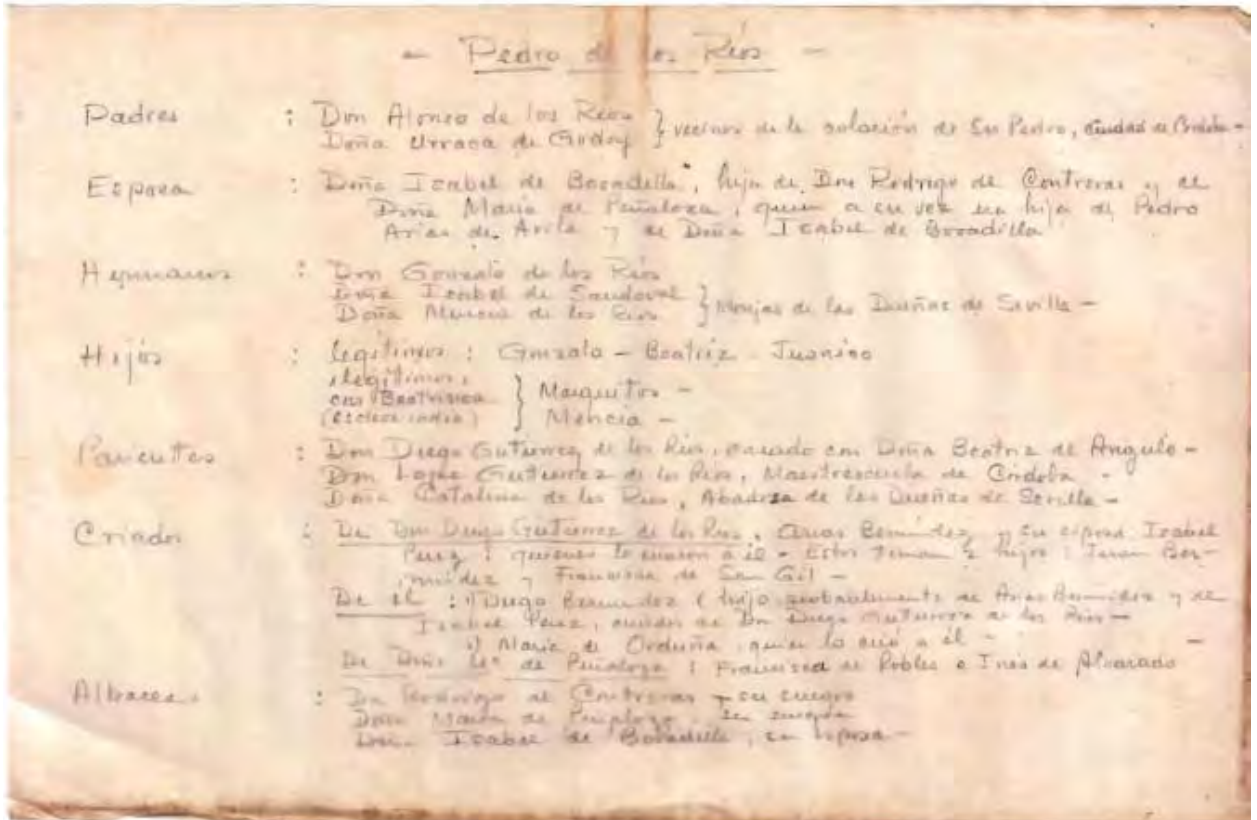 - Pedro de los Ríos -
Padres : Don Alonso de los Ríos
Doña Urraca de Godoy } vecinos de la colación de San Pedro, ciudad de Córdoba -
Esposa : Doña Isabel de Bovadilla, hija de Don Rodrigo de Contreras y de
Doña María de Peñaloza, quien a su vez era hija de Pedro
Arias de Avila y de Doña Isabel de Bovadilla
Hermanos : Don Gonzalo de los Ríos
Doña Isabel de Sandoval
Doña Mencia de los Ríos } Monjas de las Dueñas de Sevilla -
Hijos : legítimos : Gonzalo - Beatriz - Juanico
ilegítimos,
con Beatricica
(esclava india) } Marquitos -
Mencia -
Parientes : Don Diego Gutierrez de los Ríos, casado con Doña Beatriz de Angulo -
Don Lope Gutierrez de los Ríos, Maestrescuela de Córdoba -
Doña Catalina de los Ríos, Abadesa de las Dueñas de Sevilla -
Criados : De Don Diego Gutierrez de los Ríos, Arias Bermúdez y su esposa Isabel
Perez ; quienes lo criaron a él - Estos tenían 2 hijos : Ber-
múdez y Francisca de San Gil -
De él : Diego Bermudez (hijo probablemente de Arias Bermúdez y de
Isabel Perez, criados de Don Diego Gutierrez de los Ríos -
María de Orduña, quien lo crió a él -
De Doña de Peñaloza : Francisca de Robles e Inés de Alvarado
Albaceas : Don Rodrigo de Contreras - su suegro
Doña María de Peñaloza, su suegra
Doña Isabel de Bovadilla, su esposa -